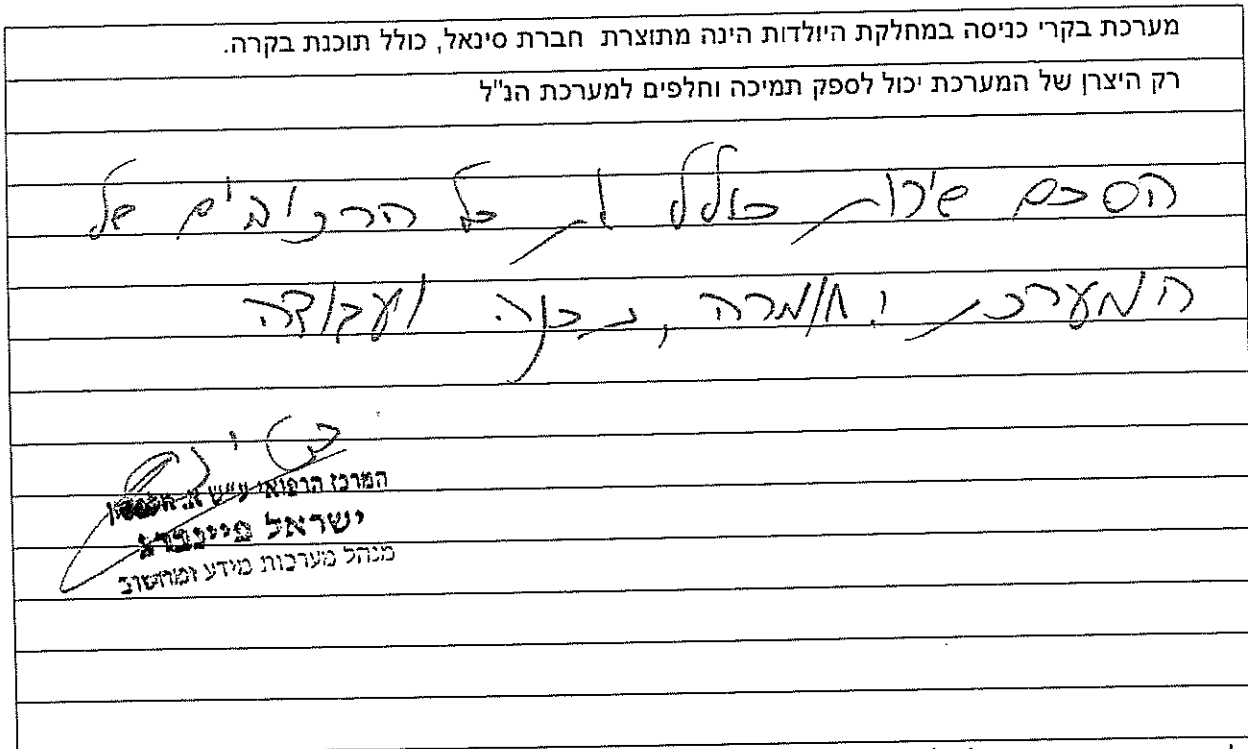 מערכת בקרי כניסה במחלקת היולדות הינה מתוצרת חברת סינאל, כולל תוכנת בקרה.
רק היצרן של המערכת יכול לספק תמיכה וחלפים למערכת הנ"ל
הסכם שירות כולל את כל הרכיבים של
המערכת: חומרה, תכנה ועבודה
המרכז הרפואי ע"ש א. וולפסון
ישראל פיינברג
מנהל מערכות מידע ומחשוב